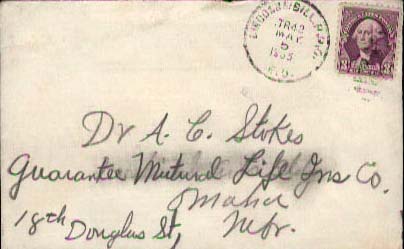 LINCOLN & BILL. R.P.O.
TR 42
MAY
5
1933
R.P.O.
3 3
Dr A. C. Stokes
Guarantee Mutural Life Ins Co.
Omaha
18th Douglas St, Nebr.